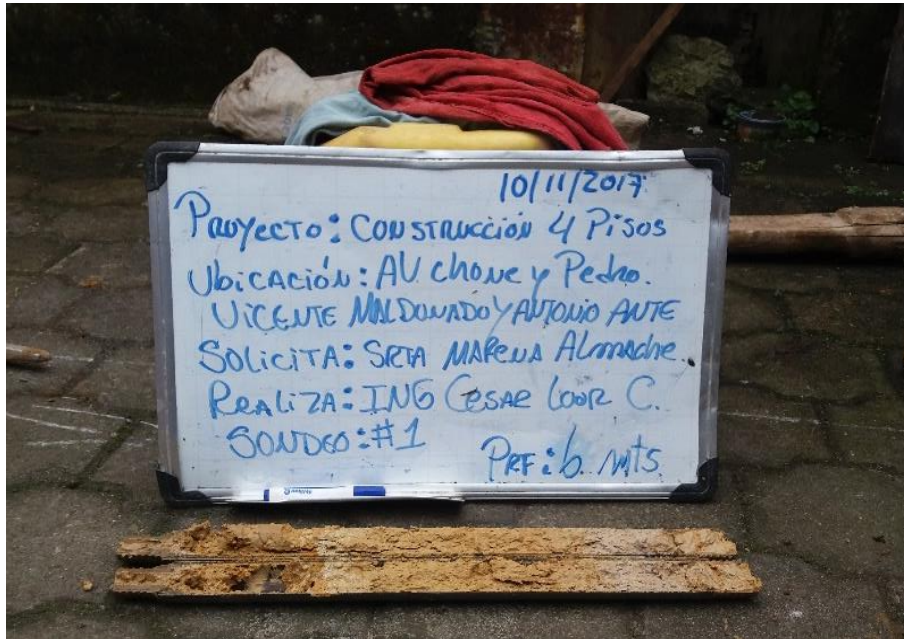 10/11/2017
Proyecto: Construcción 4 Pisos
Ubicación: AV chone y Pedro.
Vicente Maldonado y Antonio Ante
Solicita: Srta Almache
Realiza: ING Cesar Loor C.
Sondeo: #1
Prf: 6. mts